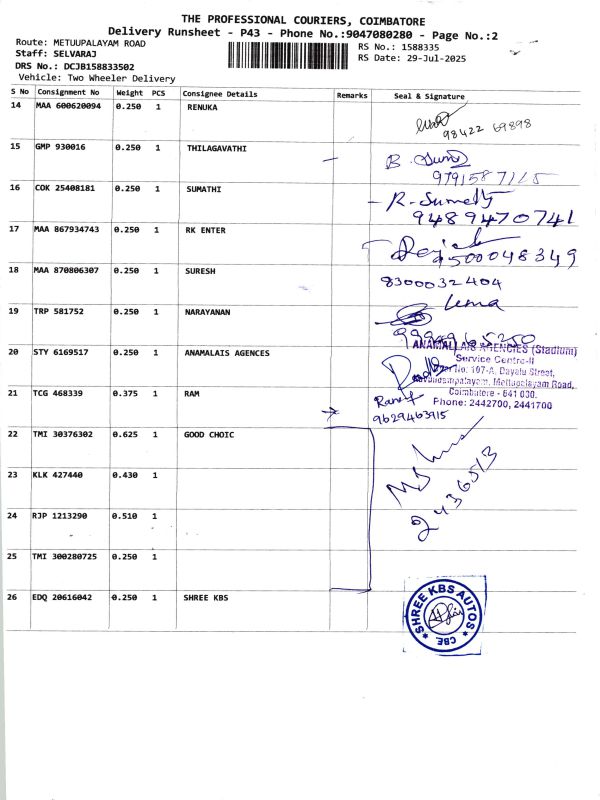 THE PROFESSIONAL COURIERS, COIMBATORE
Delivery Runsheet - P43 - Phone No.:9047080280 - Page No.:2
Route: METUUPALAYAM ROAD
Staff: SELVARAJ
DRS No.: DCJB158833502
Vehicle: Two Wheeler Delivery
RS No.: 1588335
RS Date: 29-Jul-2025
S No Consignment No Weight PCS Consignee Details Remarks Seal & Signature
14 MAA 600620094 0.250 1 RENUKA
98422 69898
15 GMP 930016 0.250 1 THILAGAVATHI
B.
16 COK 25408181 0.250 1 SUMATHI
R. Sumathy
9489470741
17 MAA 867934743 0.250 1 RK ENTER
9500048349
18 MAA 870806307 0.250 1 SURESH
8300032404
Uma
19 TRP 581752 0.250 1 NARAYANAN
20 STY 6169517 0.250 1 ANAMALAIS AGENCES
ANAMALLAIS AGENCIES (Stadium)
Service Centre-II
No: 107-A, Dayalu Street,
Mettupalayam Road,
Coimbatore - 641 030.
Phone: 2442700, 2441700
21 TCG 468339 0.375 1 RAM
9629463915
22 TMI 30376302 0.625 1 GOOD CHOIC
23 KLK 427440 0.430 1
24 RJP 1213290 0.510 1
2436513
25 TMI 300280725 0.250 1
26 EDQ 20616042 0.250 1 SHREE KBS
SHREE KBS AUTOS
CBE